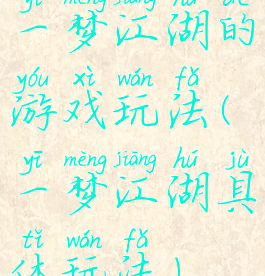 yī mèng jiāng hú de
一梦江湖的
yóu xì wán fǎ
游戏玩法(
yī mèng jiāng hú jù
一梦江湖具
tǐ wán fǎ
体玩法)